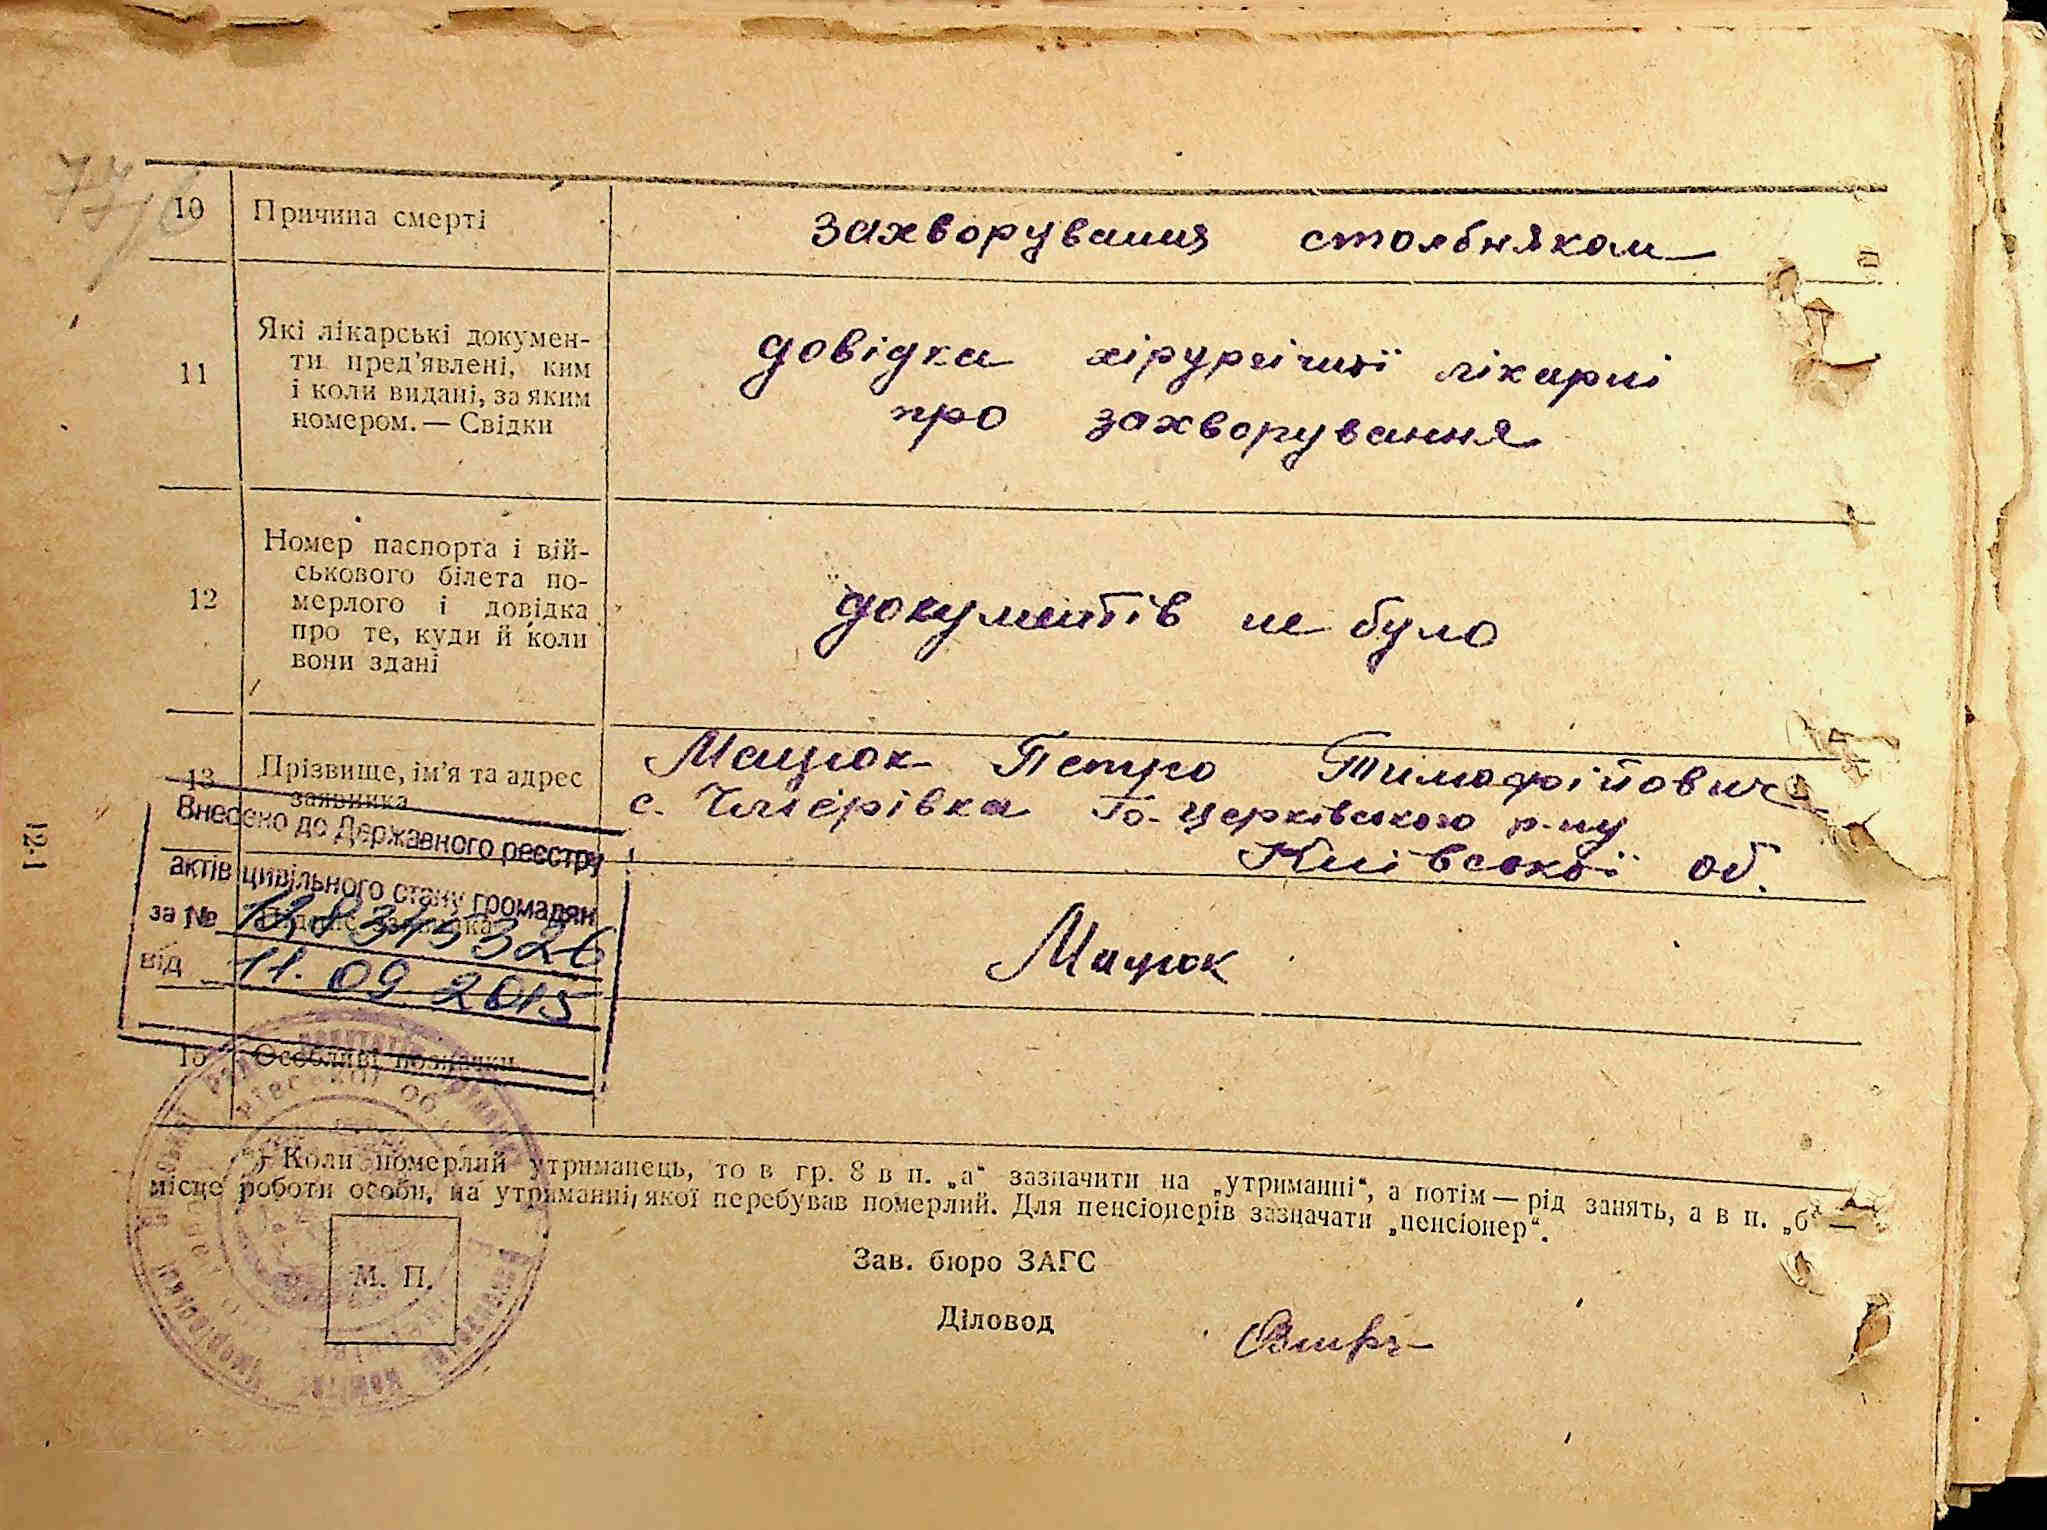 10 Причина смерті захворування столбняком
11 Які лікарські докумен-
ти пред'явлені, ким
і коли видані, за яким
номером. — Свідки
довідка хірургічної лікарні
про захворування
12 Номер паспорта і вій-
ськового білета по-
мерлого і довідка
про те, куди й коли
вони здані
документів не було
13 Прізвище, ім'я та адрес
заявника
Мацюк Петро Тимофійович
с. Чмєрівка Б-Церківського р-ну
Київської об.
Внесено до Державного реєстру
актів цивільного стану громадян
за №
від 11.09 2015
Мацюк
15 Особливі позначки
*) Коли померлий утриманець, то в гр. 8 в п. „а“ зазначити на „утриманні“, а потім — рід занять, а в п. „б“ —
місце роботи особи, на утриманні якої перебував померлий. Для пенсіонерів зазначати „пенсіонер“.
М. П.
Зав. бюро ЗАГС
Діловод
12·1